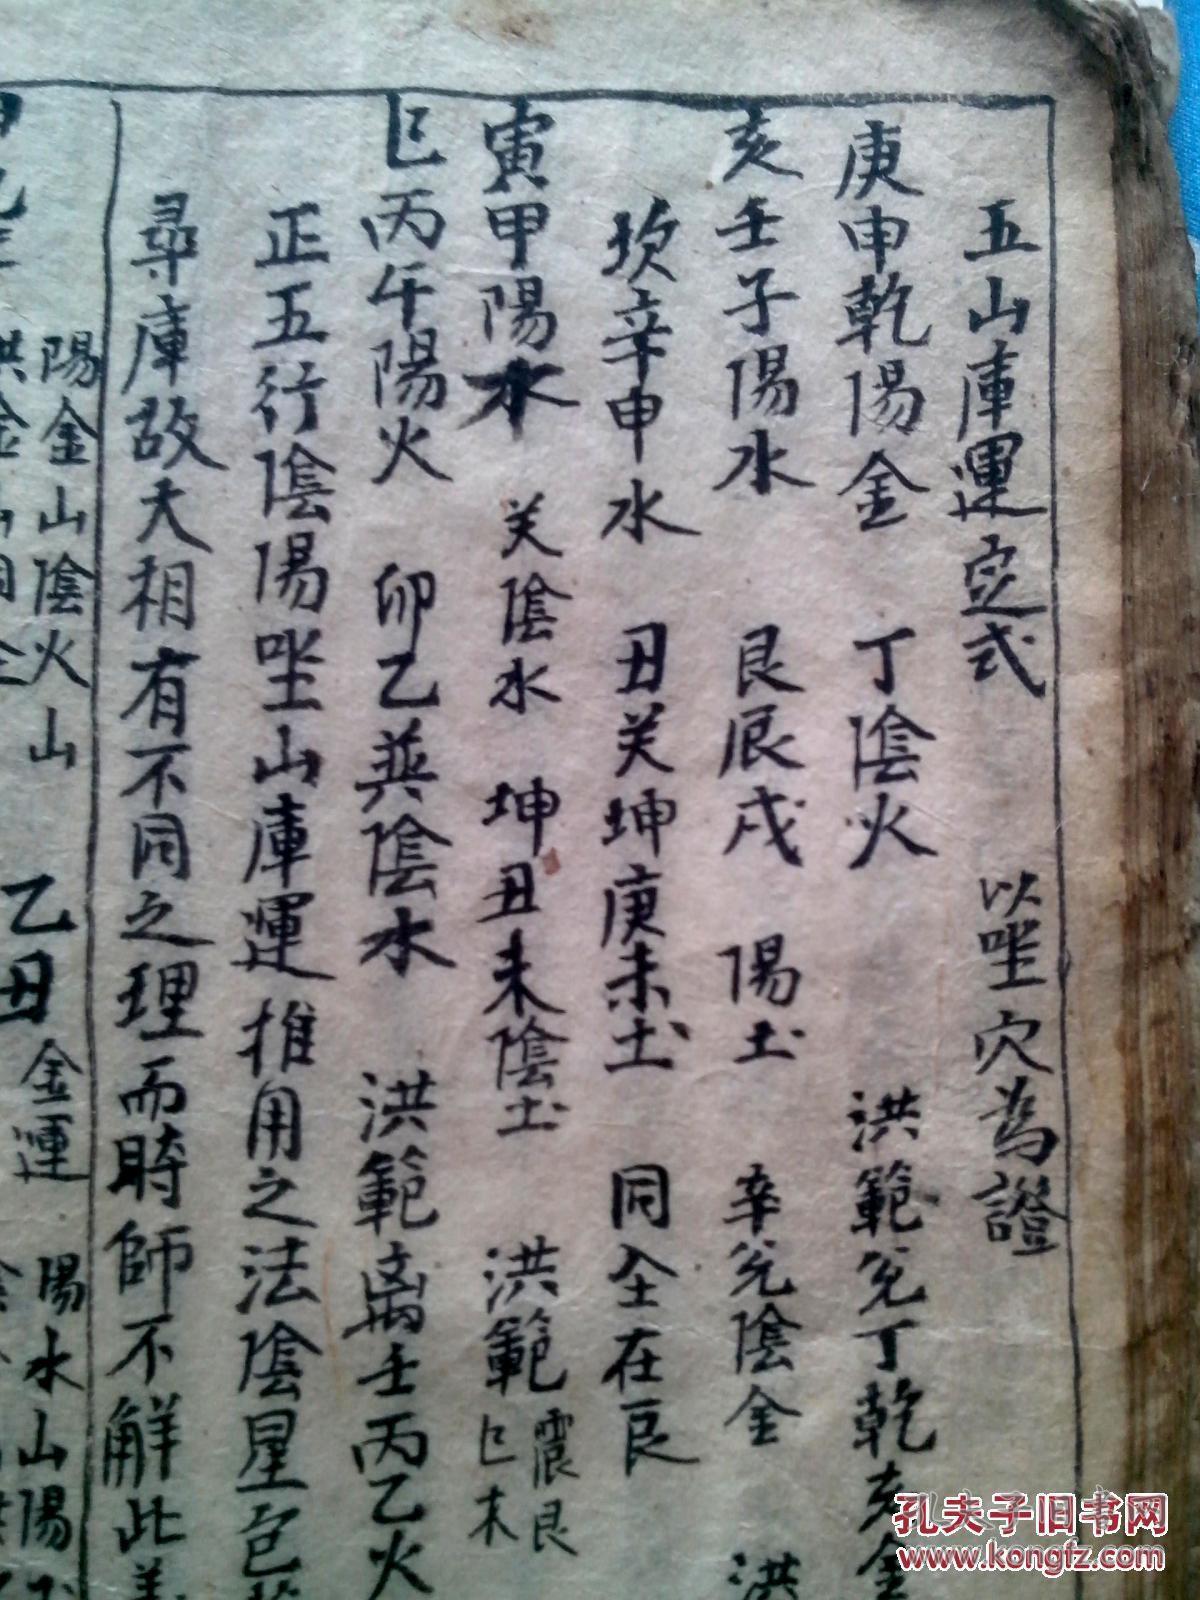 五山庫運定式 以坐穴為證
庚申乾陽金 丁陰火 洪範兌丁乾亥金
亥壬子陽水 艮辰戌 陽土 辛兌陰金 洪
坎辛申水 丑癸坤庚未土 同仝在艮
寅甲陽木 癸陰水 坤丑未陰土 洪範震艮巳木
巳丙午陽火 卯乙巽陰木 洪範离壬丙乙火
正五行陰陽坐山庫運推用之法陰星
尋庫故大相有不同之理而時師不解此
陽金山陰火山 乙丑金運 陽水山陽
孔夫子旧书网
www.kongfz.com